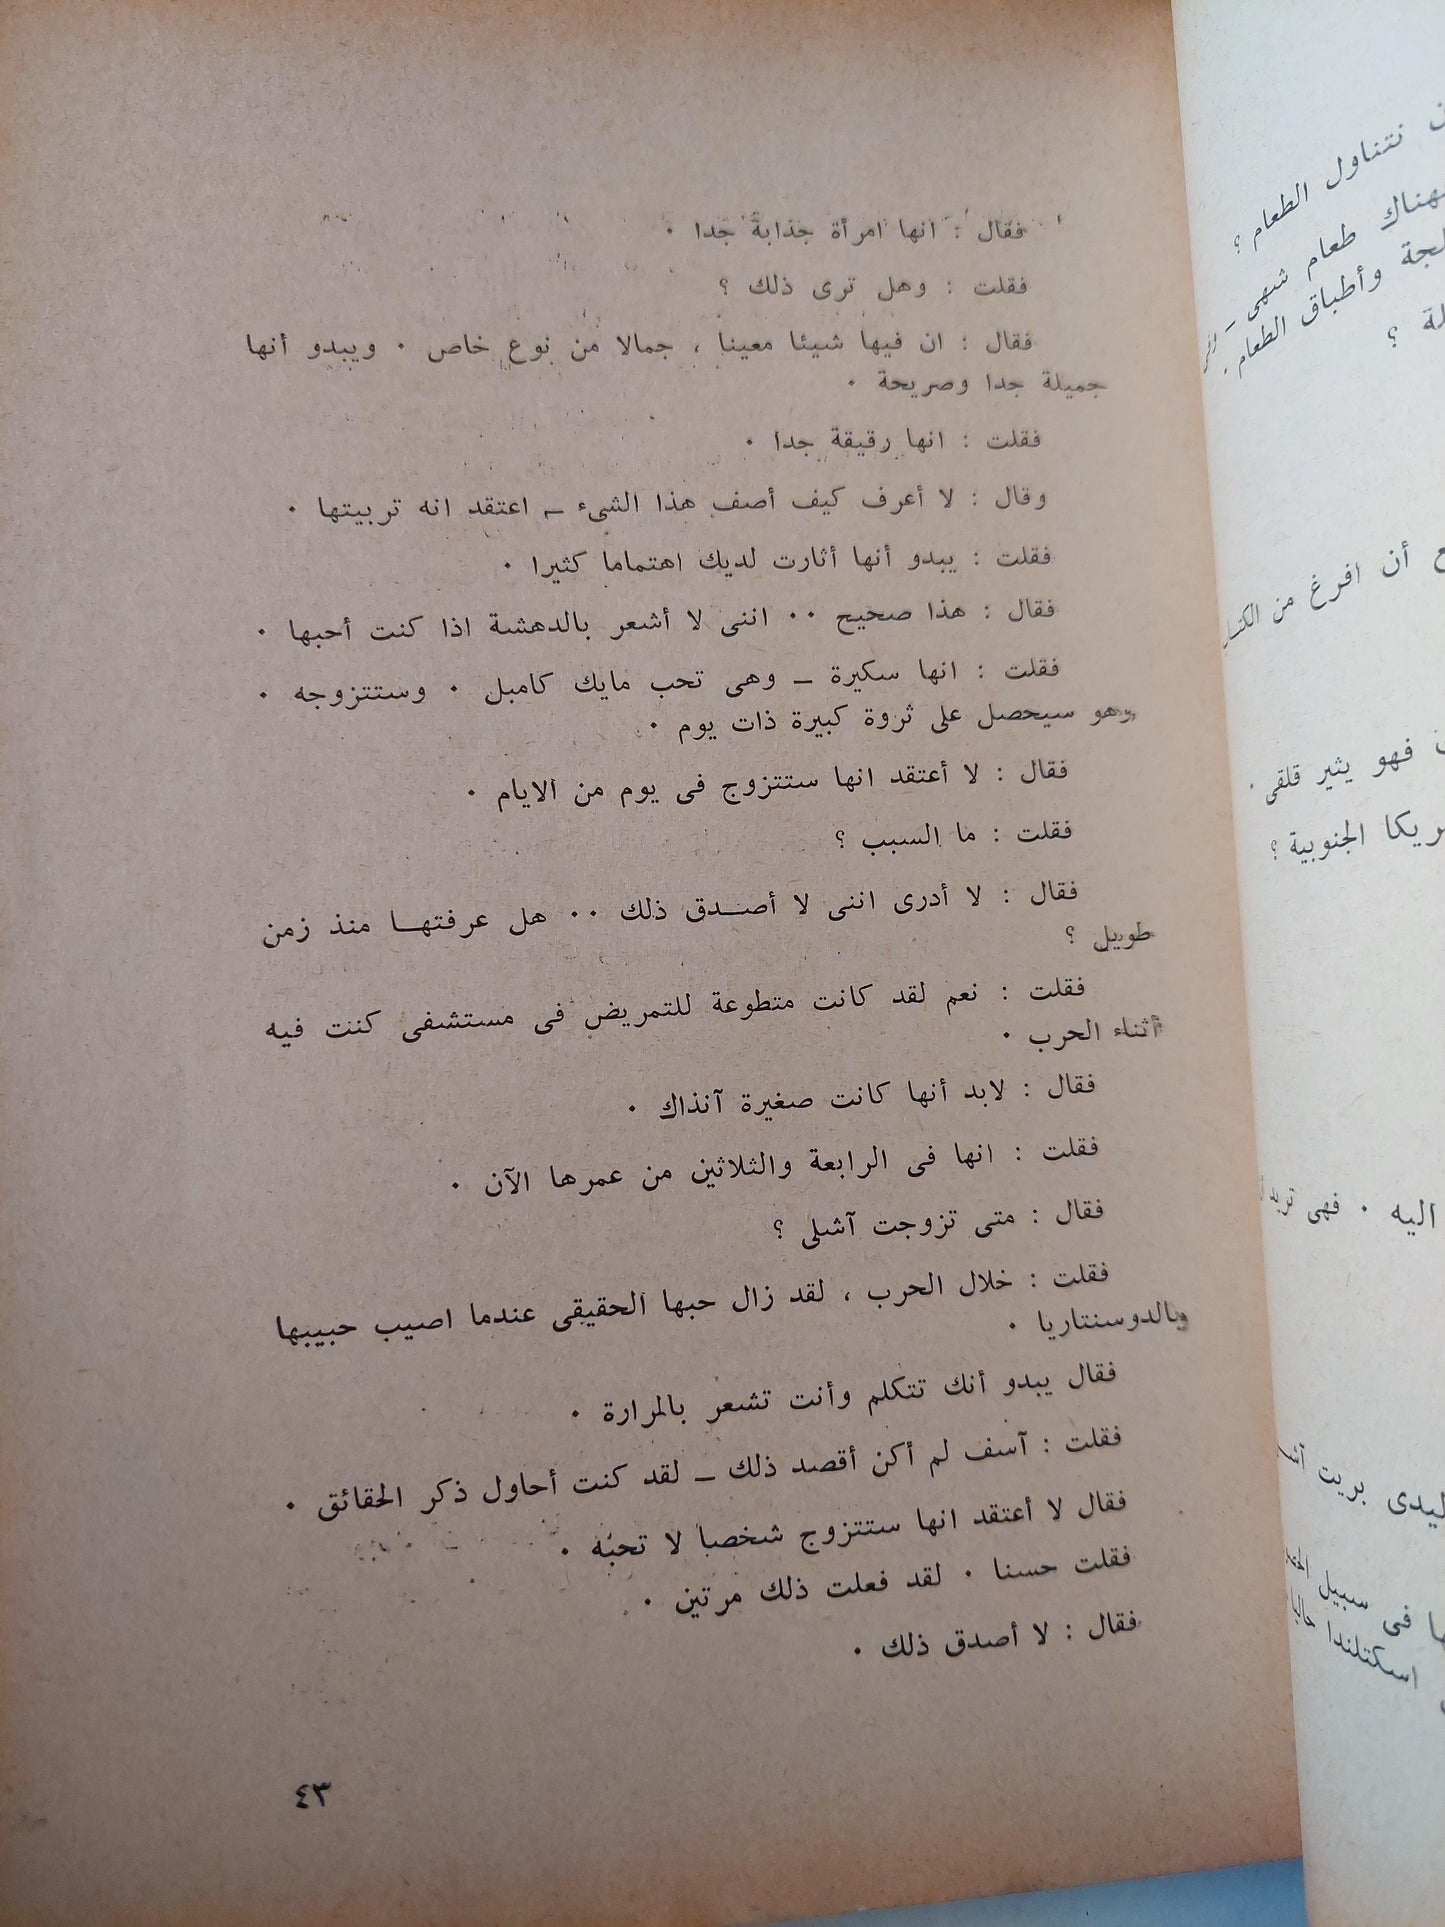 فقال : انها امرأة جذابة جدا ٠
فقلت : وهل ترى ذلك ؟
فقال : ان فيها شيئا معينا ، جمالا من نوع خاص ٠ ويبدو أنها
جميلة جدا وصريحة ٠
فقلت : انها رقيقة جدا ٠
وقال : لا أعرف كيف أصف هذا الشىء ــ اعتقد انه تربيتها ٠
فقلت : يبدو أنها أثارت لديك اهتماما كثيرا ٠
فقال : هذا صحيح ٠٠ اننى لا أشعر بالدهشة اذا كنت أحبها ٠
فقلت : انها سكيرة ــ وهى تحب مايك كامبل ٠ وستتزوجه ٠
وهو سيحصل على ثروة كبيرة ذات يوم ٠
فقال : لا أعتقد انها ستتزوج فى يوم من الايام ٠
فقلت : ما السبب ؟
فقال : لا أدرى اننى لا أصــدق ذلك ٠٠ هل عرفتهــا منذ زمن
طويل ؟
فقلت : نعم لقد كانت متطوعة للتمريض فى مستشفى كنت فيه
أثناء الحرب ٠
فقال : لابد أنها كانت صغيرة آنذاك ٠
فقلت : انها فى الرابعة والثلاثين من عمرها الآن ٠
فقال : متى تزوجت آشلى ؟
فقلت : خلال الحرب ، لقد زال حبها الحقيقى عندما اصيب حبيبها
بالدوسنتاريا ٠
فقال يبدو أنك تتكلم وأنت تشعر بالمرارة ٠
فقلت : آسف لم أكن أقصد ذلك ــ لقد كنت أحاول ذكر الحقائق ٠
فقال لا أعتقد انها ستتزوج شخصا لا تحبه ٠
فقلت حسنا ٠ لقد فعلت ذلك مرتين ٠
فقال : لا أصدق ذلك ٠
٤٣
نتناول الطعام ؟
طعام شهى ــ
وأطباق الطعام
؟
أن افرغ من
فهو يثير قلقى ٠
الجنوبية ؟
اليه ٠ فهى
بريت
فى سبيل
اسكتلندا